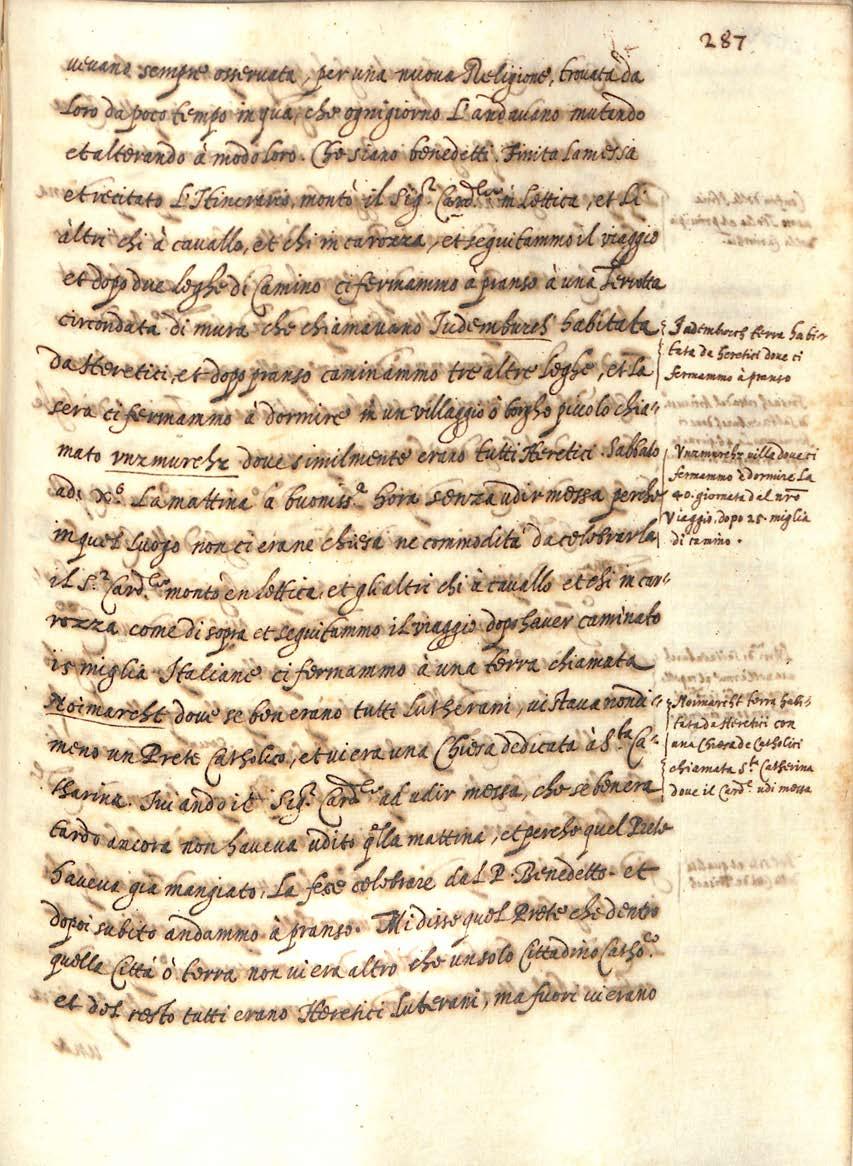 287
uevano sempre osseruata, per una nuova Religione, trouata da
loro da poco tempo in qua, che ogni giorno l'andavano mutando
et alterando à modo loro. Che siano benedetti. Finita la messa
et recitato l'Itinerario, montò il Sig.r Card.le in lettica, et li
altri chi à cavallo, et chi in carozza, et seguitammo il viaggio
et dopo due leghe di Camino ci fermammo à pranso à una Terretta
circondata di mura che chiamavano Judemburch habitata
da Heretici, et dopo pranso caminammo tre altre leghe, et la
sera ci fermammo à dormire in un villaggio ò borgho piccolo chia-
mato vnzmurchz dove similmente erano tutti Heretici. Sabbato
adi X.o La mattina à buoniss.a hora senza udir messa perche
in quel luogo non ci era ne chiesa ne commodità da celebrarla
il S.r Card.le montò en lettica, et gli altri chi à cavallo et chi in car-
rozza come di sopra et seguitammo il viaggio dopo haver caminato
15 miglia Italiane ci fermammo à una terra chiamata
Noimarcht dove se ben erano tutti Lutherani, vi stava nondi-
meno un Prete Catholico, et vi era una Chiesa dedicata à S.ta Ca-
tharina. Jui andò il Sig.r Card.le ad udir messa, che se ben era
tardo ancora non haveva udito q.lla mattina, et perche quel Prete
haveva gia mangiato, La fece celebrare dal P. Benedetto. et
dopoi subito andammo à pranso. Mi disse quel Prete che dentro
quella Città ò terra non vi era altro che un solo Cittadino Catho.co
et del resto tutti erano Heretici Luterani, ma fuori vi erano
Judemborch terra habi-
tata da heretici dove ci
fermammo à pranso
Vnzmurchz villa dove ci
fermammo à dormire La
40. giornata del nro
Viaggio, dopo 25. miglia
di camino.
Noimarcht terra habi-
tata da Heretici con
una Chiesa de Catholici
chiamata S.ta Catherina
dove il Card.le udi messa